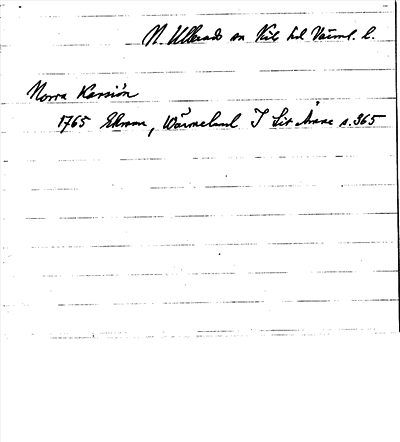 N. Ullerud sn Kils hd Värml. l.
Norra Kärrsjön
1765 Ekman, Wärmeland I Sit Ämne s. 365